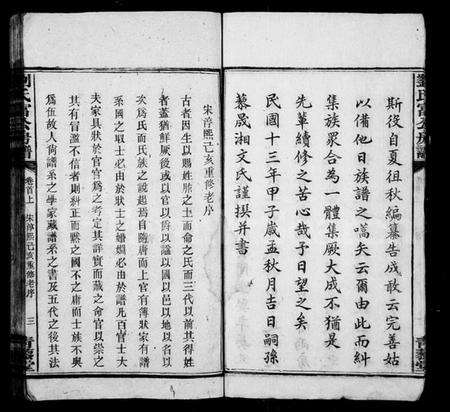 斯役自夏徂秋編纂告成敢云完善姑
以備他日族譜之嚆矢云爾由此而糾
集族眾合為一體集厥大成不猶是
先輩續修之苦心哉予日望之矣
民國十三年甲子歲孟秋月吉日嗣孫
藜晟湘文氏謹撰并書
宋淳熙己亥重修老序
古者因生以賜姓胙之土而命之氏而三代以前其得姓
者蓋猶鮮厥後或以官以爵以謚以國以邑以地以名以
次為氏而氏族之說起焉自隋唐而上官有薄狀家有譜
系國之取士必由於狀士之婚姻必由於譜凡百官士大
夫家具狀於官官為之考定其詳實而藏之命官以崇之
其有冒濫不信者則糾正而黜之國不之庸而士族不與
為伍故人尚譜系之學家藏譜系之書及五代之後其法
劉氏富公房譜
卷首上
宋淳熙己亥重修老序
三